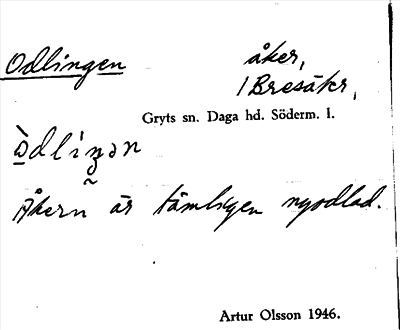 Odlingen
åker,
/ Bresäkr,
Gryts sn. Daga hd. Söderm. l.
Åkern är tämligen nyodlad.
Artur Olsson 1946.